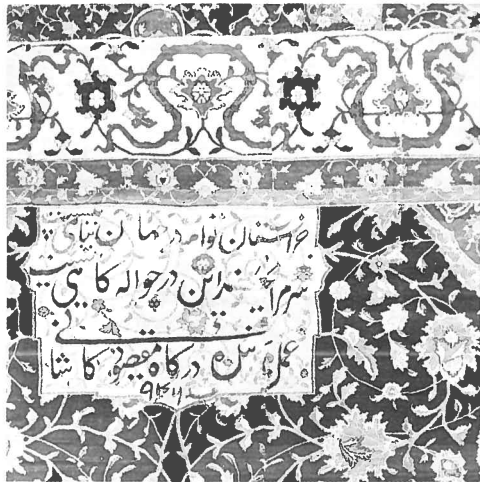 جز استان توام در جهان پناهی نیست
سر مرا بجز این در حواله کاهی نیست
عمل بنده درکاه مقصود کاشانی
سنه ۹۴۶